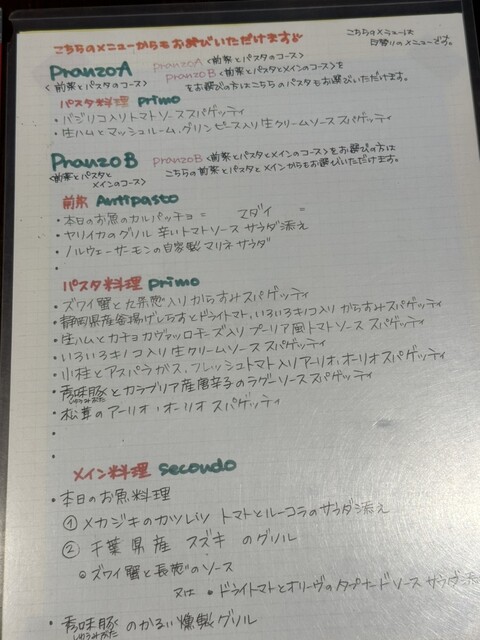 こちらのメニューからもお選びいただけます
こちらのメニューは
日替りのメニューです。
Pranzo A 〈前菜とパスタのコース〉
〈前菜とパスタのコース〉 Pranzo B 〈前菜とパスタとメインのコース〉を
をお選びの方はこちらのパスタもお選びいただけます。
パスタ料理 primo
・バジリコ入りトマトソーススパゲッティ
・生ハムとマッシュルーム、グリンピース入り生クリームソーススパゲッティ
Pranzo B PranzoB〈前菜とパスタとメインのコース〉をお選びの方は
〈前菜とパスタと
メインのコース〉 こちらの前菜とパスタとメインからもお選びいただけます。
前菜 Antipasto
・本日のお魚のカルパッチョ = マダイ =
・ヤリイカのグリル 辛いトマトソース サラダ添え
・ノルウェーサーモンの自家製マリネサラダ
・
パスタ料理 primo
・ズワイ蟹と九条葱入りからすみスパゲッティ
・静岡県産釜揚げしらすとドライトマト、いろいろキノコ入りからすみスパゲッティ
・生ハムとカチョカヴァッロチーズ入りプーリア風トマトソース スパゲッティ
・いろいろキノコ入り生クリームソース スパゲッティ
・小柱とアスパラガス、フレッシュトマト入りアーリオ、オーリオスパゲッティ
・味豚とカラブリア産唐辛子のラグーソーススパゲッティ
・松茸のアーリオ・オーリオ スパゲッティ
・
・
メイン料理 secondo
・本日のお魚料理
① メカジキのカツレツ トマトとルーコラのサラダ添え
② 千葉県産 スズキ のグリル
◎ ズワイ蟹と長葱のソース
又は ・ドライトマトとオリーヴのタプナードソース サラダ添え
・味豚 のかるい燻製グリル